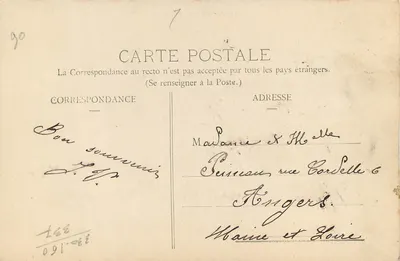 90
7
CARTE POSTALE
La Correspondance au recto n'est pas acceptée par tous les pays étrangers.
(Se renseigner à la Poste.)
CORRESPONDANCE
ADRESSE
Bon souvenir
Madame et Melle
rue Cordelle 6
Angers.
Maine et Loire
330-160
397